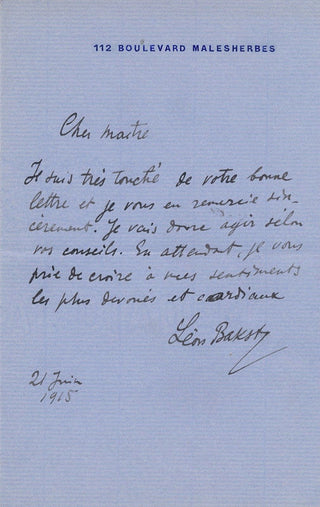 112 BOULEVARD MALESHERBES
Cher maitre
Je suis très touché de votre bonne
lettre et je vous en remercie sin-
cèrement. Je vais donc agir sélon
vos conseils. En attendant, je vous
prie de croire à mes sentiments
les plus devoués et cardiaux
Léon Bakst
21 Juin
1915